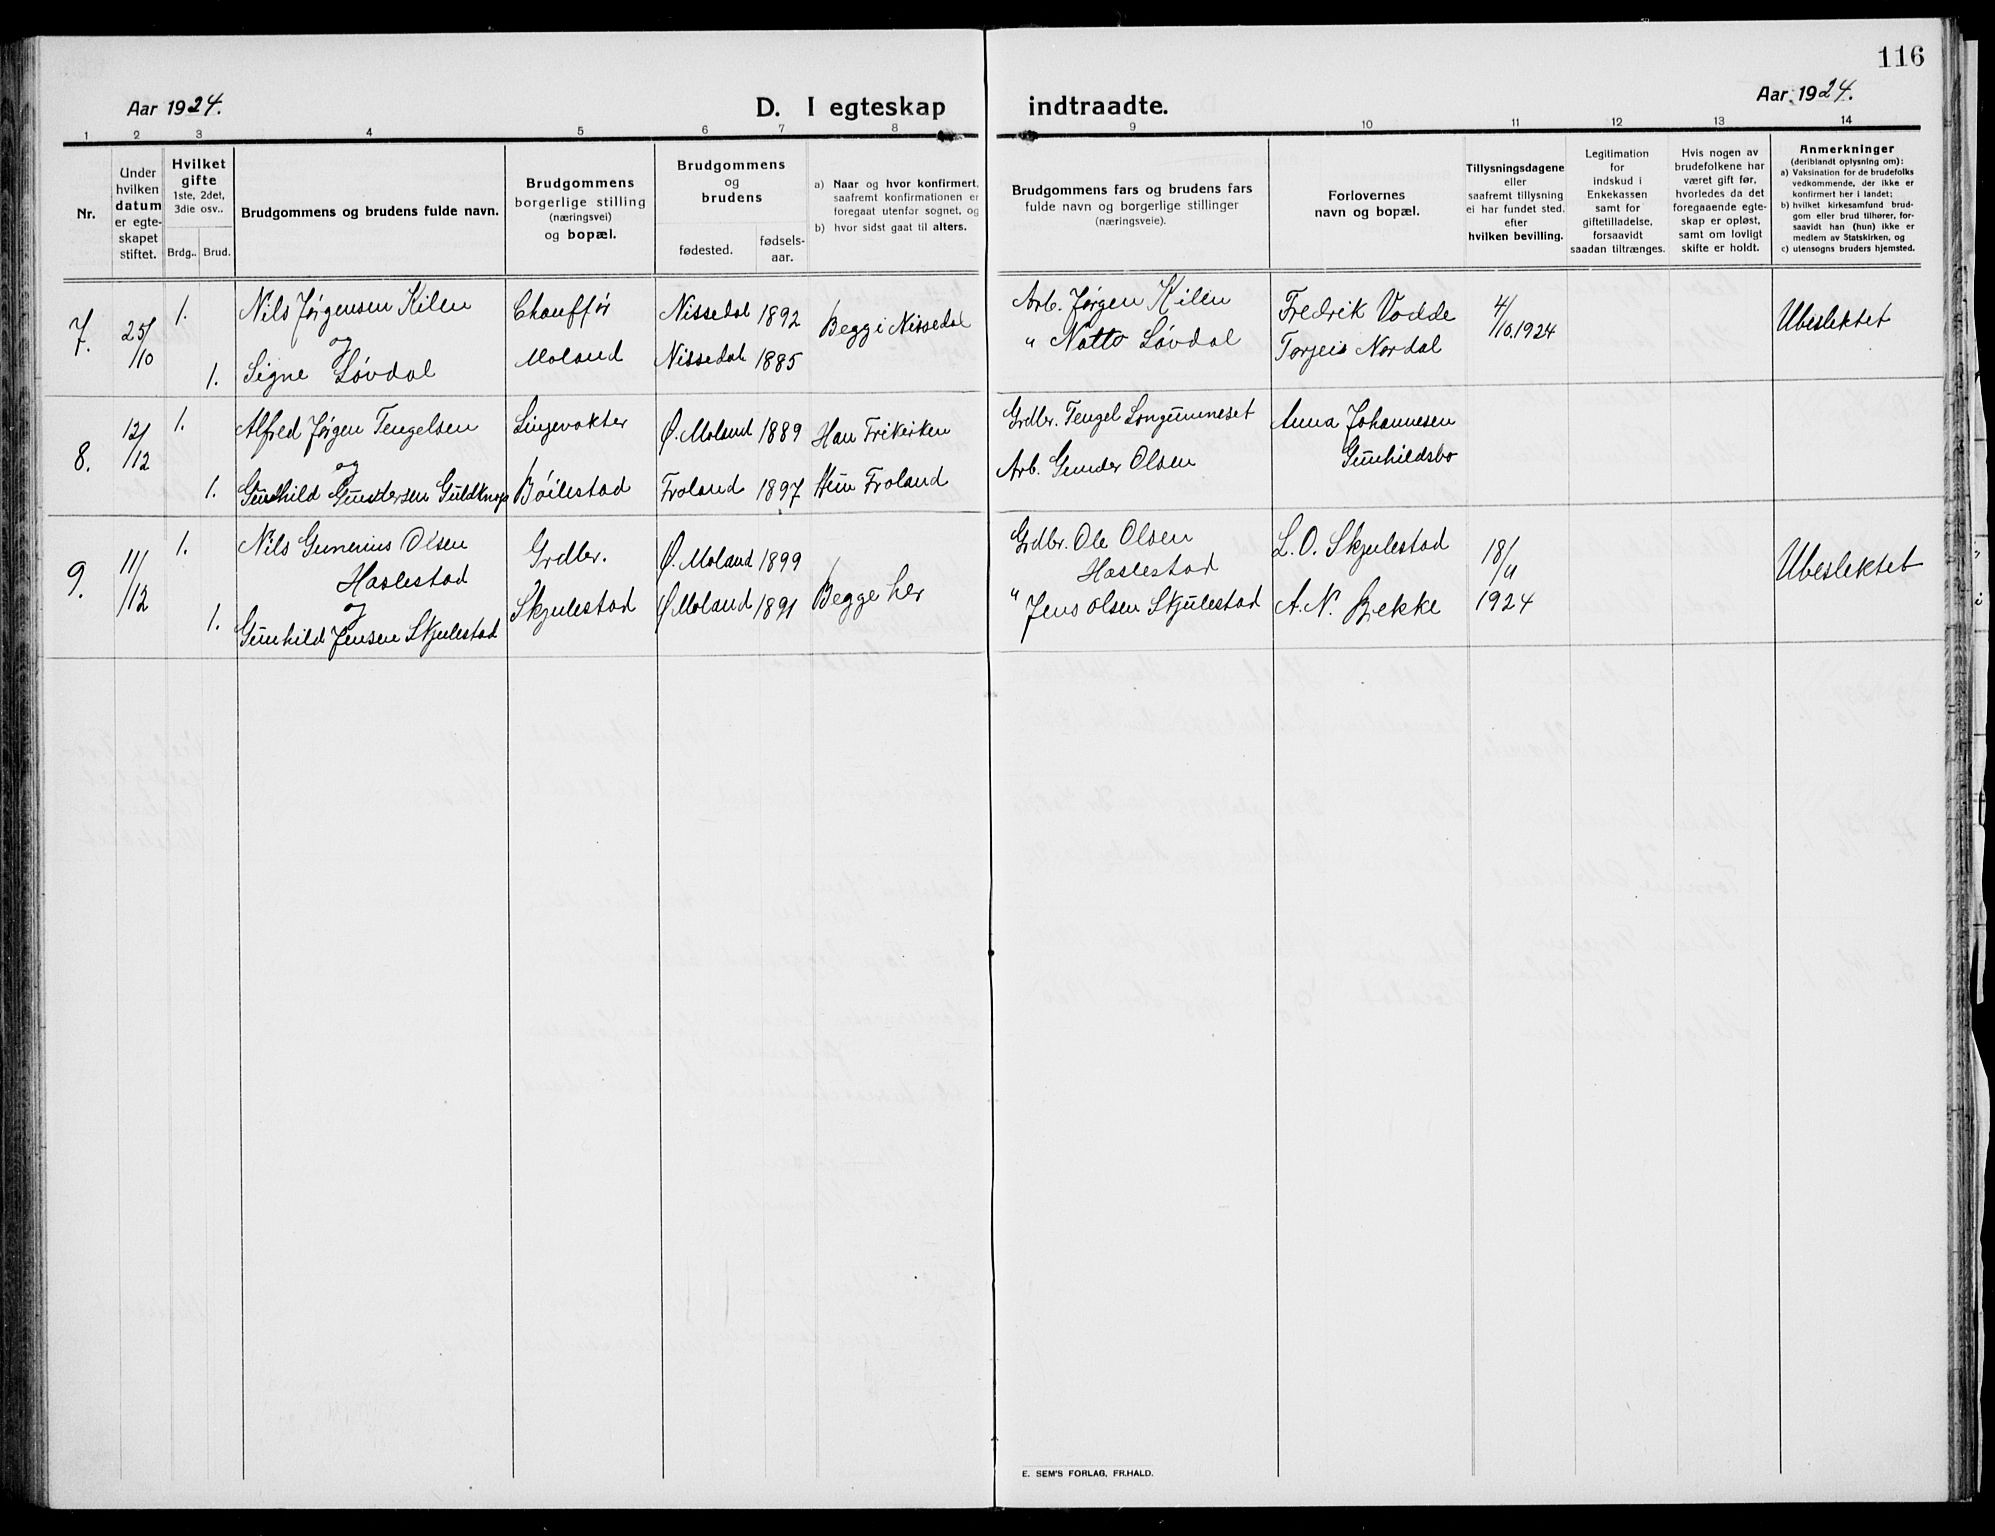 116
Aar 1924.
D. I egteskap indtraadte.
Aar 1924.
1 2 3 4 5 6 7 8 9 10 11 12 13 14
Nr.
Under
hvilken
datum
er egte-
skapet
stiftet.
Hvilket
gifte
1ste, 2det,
3die osv..
Brdg.. Brud.
Brudgommens og brudens fulde navn.
Brudgommens
borgerlige stilling
(næringsvei)
og bopæl.
Brudgommens
og
brudens
fødested.
fødsels-
aar.
a) Naar og hvor konfirmert,
saafremt konfirmationen er
foregaat utenfor sognet, og
b) hvor sidst gaat til alters.
Brudgommens fars og brudens fars
fulde navn og borgerlige stillinger
(næringsveie).
Forlovernes
navn og bopæl.
Tillysningsdagene
eller
saafremt tillysning
ei har fundet sted.
efter
hvilken bevilling.
Legitimation
for
indskud i
Enkekassen
samt for
giftetilladelse,
forsaavidt
saadan tiltrænges.
Hvis nogen av
brudefolkene har
været gift før,
hvorledes da det
foregaaende egte-
skap er opløst,
samt om lovligt
skifte er holdt.
Anmerkninger
(deriblandt oplysning om):
a) Vaksination for de brudefolks
vedkommende, der ikke er
konfirmert her i landet;
b) hvilket kirkesamfund brud-
gom eller brud tilhører, for-
saavidt han (hun) ikke er
medlem av Statskirken, og
c) utensogns bruders hjemsted.
7.
25/10
1.
Nils Jørgensen Kilen
og
1. Signe Løvdal
Chauffør
Moland
Nissedal 1892
Nissedal 1885
Begge i Nissedal
Arb. Jørgen Kilen
" Natto Løvdal
Fredrik Vodde
Torjeis Nordal
4/10.1924
Ubeslektet
8.
12/12
1.
Alfred Jørgen Tengelsen
og
1. Gunhild Gundersen Guldknap
Linjevokter
Bøilestad
Ø. Moland 1889
Froland 1897
Han Frikirken
Hun Froland
Grdbr. Tengel Longumneset
Arb. Gunder Olsen
Anna Johannesen
Gunhildsbo
9.
11/12
1.
Nils Gunerius Olsen
Haslestad
og
1. Gunhild Jensen Skjulestad
Grdbr.
Skjulestad
Ø. Moland 1899
Ø Moland 1891
Begge her
Grdbr. Ole Olsen
Haslestad
" Jens Olsen Skjulestad
L. O. Skjulestad
A. N. Bekke
18/11
1924
Ubeslektet
E. SEM'S FORLAG, FR.HALD.